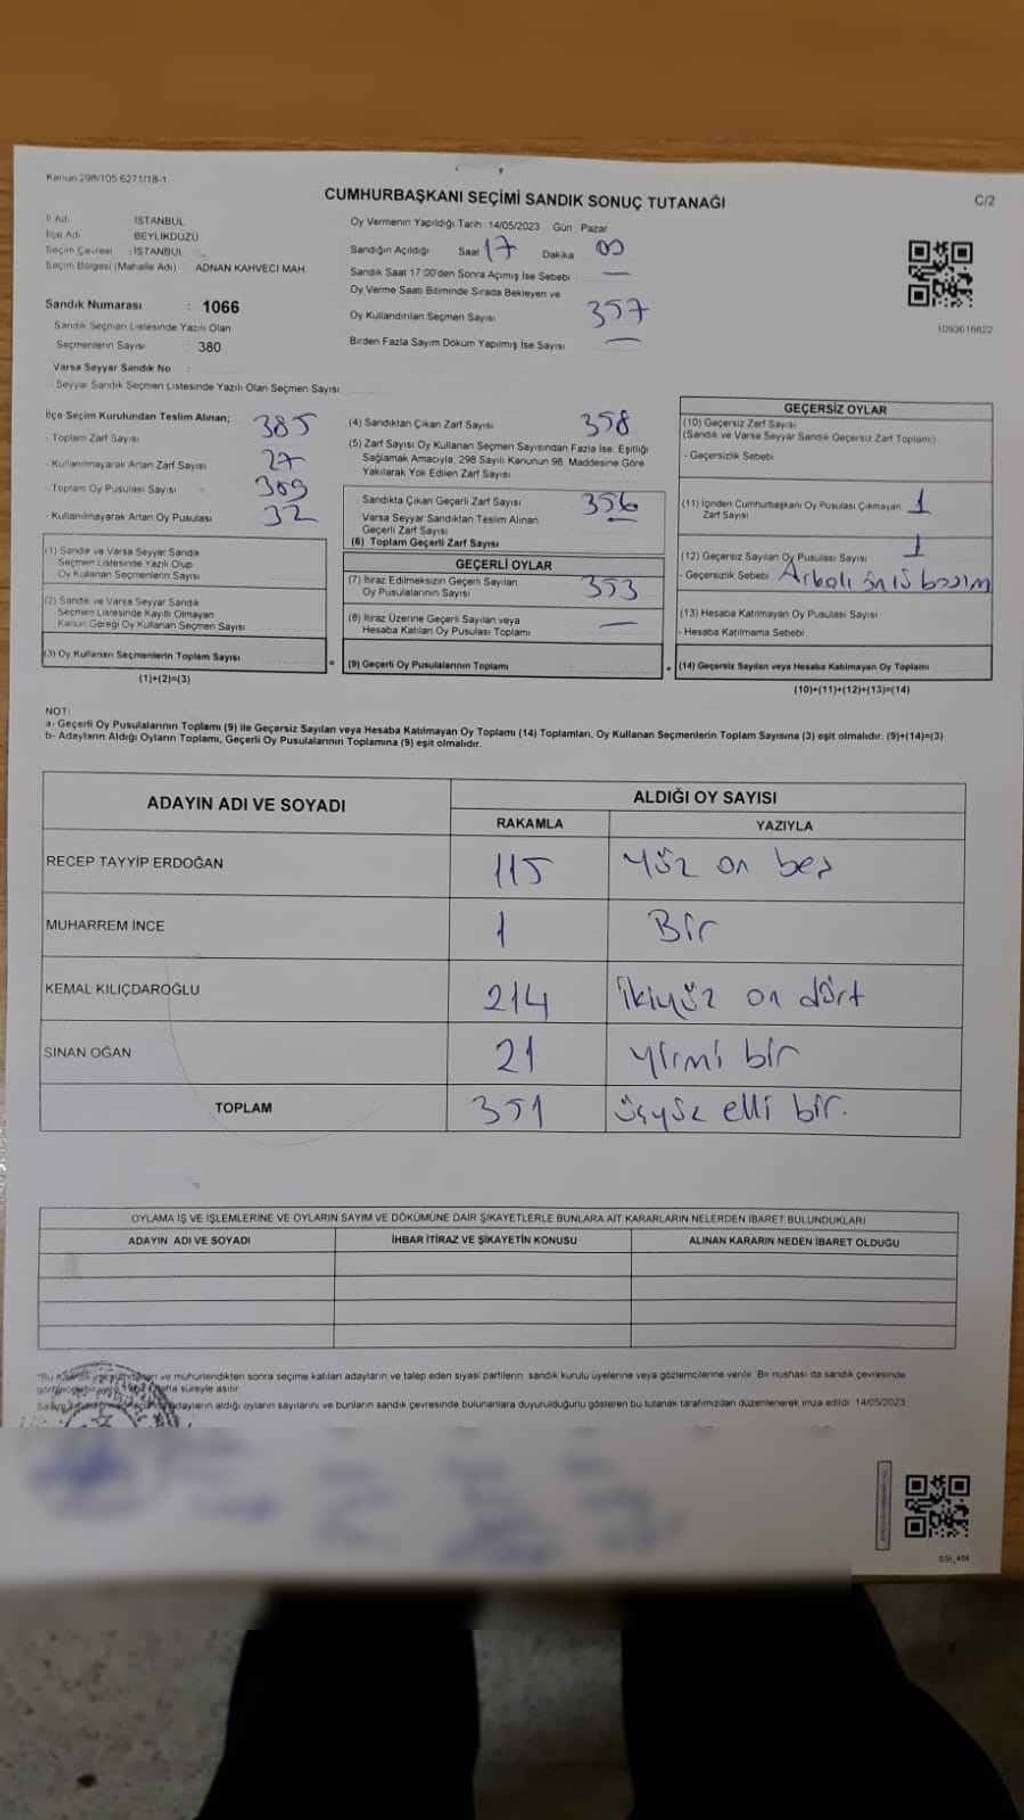 Kanun 298/105 6271/18-1
CUMHURBAŞKANI SEÇİMİ SANDIK SONUÇ TUTANAĞI
C/2
İl Adı : İSTANBUL
İlçe Adı : BEYLİKDÜZÜ
Seçim Çevresi : İSTANBUL
Seçim Bölgesi (Mahalle Adı) : ADNAN KAHVECİ MAH.
Sandık Numarası : 1066
Sandık Seçmen Listesinde Yazılı Olan
Seçmenlerin Sayısı : 380
Varsa Seyyar Sandık No :
Seyyar Sandık Seçmen Listesinde Yazılı Olan Seçmen Sayısı
Oy Vermenin Yapıldığı Tarih : 14/05/2023 Gün : Pazar
Sandığın Açıldığı Saat 17 Dakika 00
Sandık Saat 17:00'den Sonra Açılmış İse Sebebi —
Oy Verme Saati Bitiminde Sırada Bekleyen ve
Oy Kullandırılan Seçmen Sayısı 357
Birden Fazla Sayım Döküm Yapılmış İse Sayısı —
İlçe Seçim Kurulundan Teslim Alınan;
- Toplam Zarf Sayısı 385
- Kullanılmayarak Artan Zarf Sayısı 27
- Toplam Oy Pusulası Sayısı 389
- Kullanılmayarak Artan Oy Pusulası 32
(1) Sandık ve Varsa Seyyar Sandık
Seçmen Listesinde Yazılı Olup
Oy Kullanan Seçmenlerin Sayısı
(2) Sandık ve Varsa Seyyar Sandık
Seçmen Listesinde Kayıtlı Olmayan
Kanun Gereği Oy Kullanan Seçmen Sayısı
(3) Oy Kullanan Seçmenlerin Toplam Sayısı
(1)+(2)=(3)
(4) Sandıktan Çıkan Zarf Sayısı 358
(5) Zarf Sayısı Oy Kullanan Seçmen Sayısından Fazla İse, Eşitliği
Sağlamak Amacıyla, 298 Sayılı Kanunun 98. Maddesine Göre
Yakılarak Yok Edilen Zarf Sayısı
Sandıkta Çıkan Geçerli Zarf Sayısı 356
Varsa Seyyar Sandıktan Teslim Alınan
Geçerli Zarf Sayısı —
(6) Toplam Geçerli Zarf Sayısı
GEÇERLİ OYLAR
(7) İtiraz Edilmeksizin Geçerli Sayılan
Oy Pusulalarının Sayısı 353
(8) İtiraz Üzerine Geçerli Sayılan veya
Hesaba Katılan Oy Pusulası Toplamı —
(9) Geçerli Oy Pusulalarının Toplamı
GEÇERSİZ OYLAR
(10) Geçersiz Zarf Sayısı
(Sandık ve Varsa Seyyar Sandık Geçersiz Zarf Toplamı)
- Geçersizlik Sebebi
(11) İçinden Cumhurbaşkanı Oy Pusulası Çıkmayan 1
Zarf Sayısı
(12) Geçersiz Sayılan Oy Pusulası Sayısı 1
- Geçersizlik Sebebi
(13) Hesaba Katılmayan Oy Pusulası Sayısı
- Hesaba Katılmama Sebebi
(14) Geçersiz Sayılan veya Hesaba Katılmayan Oy Toplamı
(10)+(11)+(12)+(13)=(14)
NOT:
a- Geçerli Oy Pusulalarının Toplamı (9) ile Geçersiz Sayılan veya Hesaba Katılmayan Oy Toplamı (14) Toplamları, Oy Kullanan Seçmenlerin Toplam Sayısına (3) eşit olmalıdır. (9)+(14)=(3)
b- Adayların Aldığı Oyların Toplamı, Geçerli Oy Pusulalarının Toplamına (9) eşit olmalıdır.
ADAYIN ADI VE SOYADI
ALDIĞI OY SAYISI
RAKAMLA YAZIYLA
RECEP TAYYİP ERDOĞAN 115 Yüz on beş
MUHARREM İNCE 1 Bir
KEMAL KILIÇDAROĞLU 214 İkiyüz on dört
SİNAN OĞAN 21 yirmi bir
TOPLAM 351 üçyüz elli bir.
OYLAMA İŞ VE İŞLEMLERİNE VE OYLARIN SAYIM VE DÖKÜMÜNE DAİR ŞİKAYETLERLE BUNLARA AİT KARARLARIN NELERDEN İBARET BULUNDUKLARI
ADAYIN ADI VE SOYADI İHBAR İTİRAZ VE ŞİKAYETİN KONUSU ALINAN KARARIN NEDEN İBARET OLDUĞU
ve mühürlendikten sonra seçime katılan adayların ve talep eden siyasi partilerin sandık kurulu üyelerine veya gözlemcilerine verilir. Bir nüshası da sandık çevresinde
süreyle asılır.
adayların aldığı oyların sayılarını ve bunların sandık çevresinde bulunanlara duyurulduğunu gösteren bu tutanak tarafımızdan düzenlenerek imza edildi. 14/05/2023